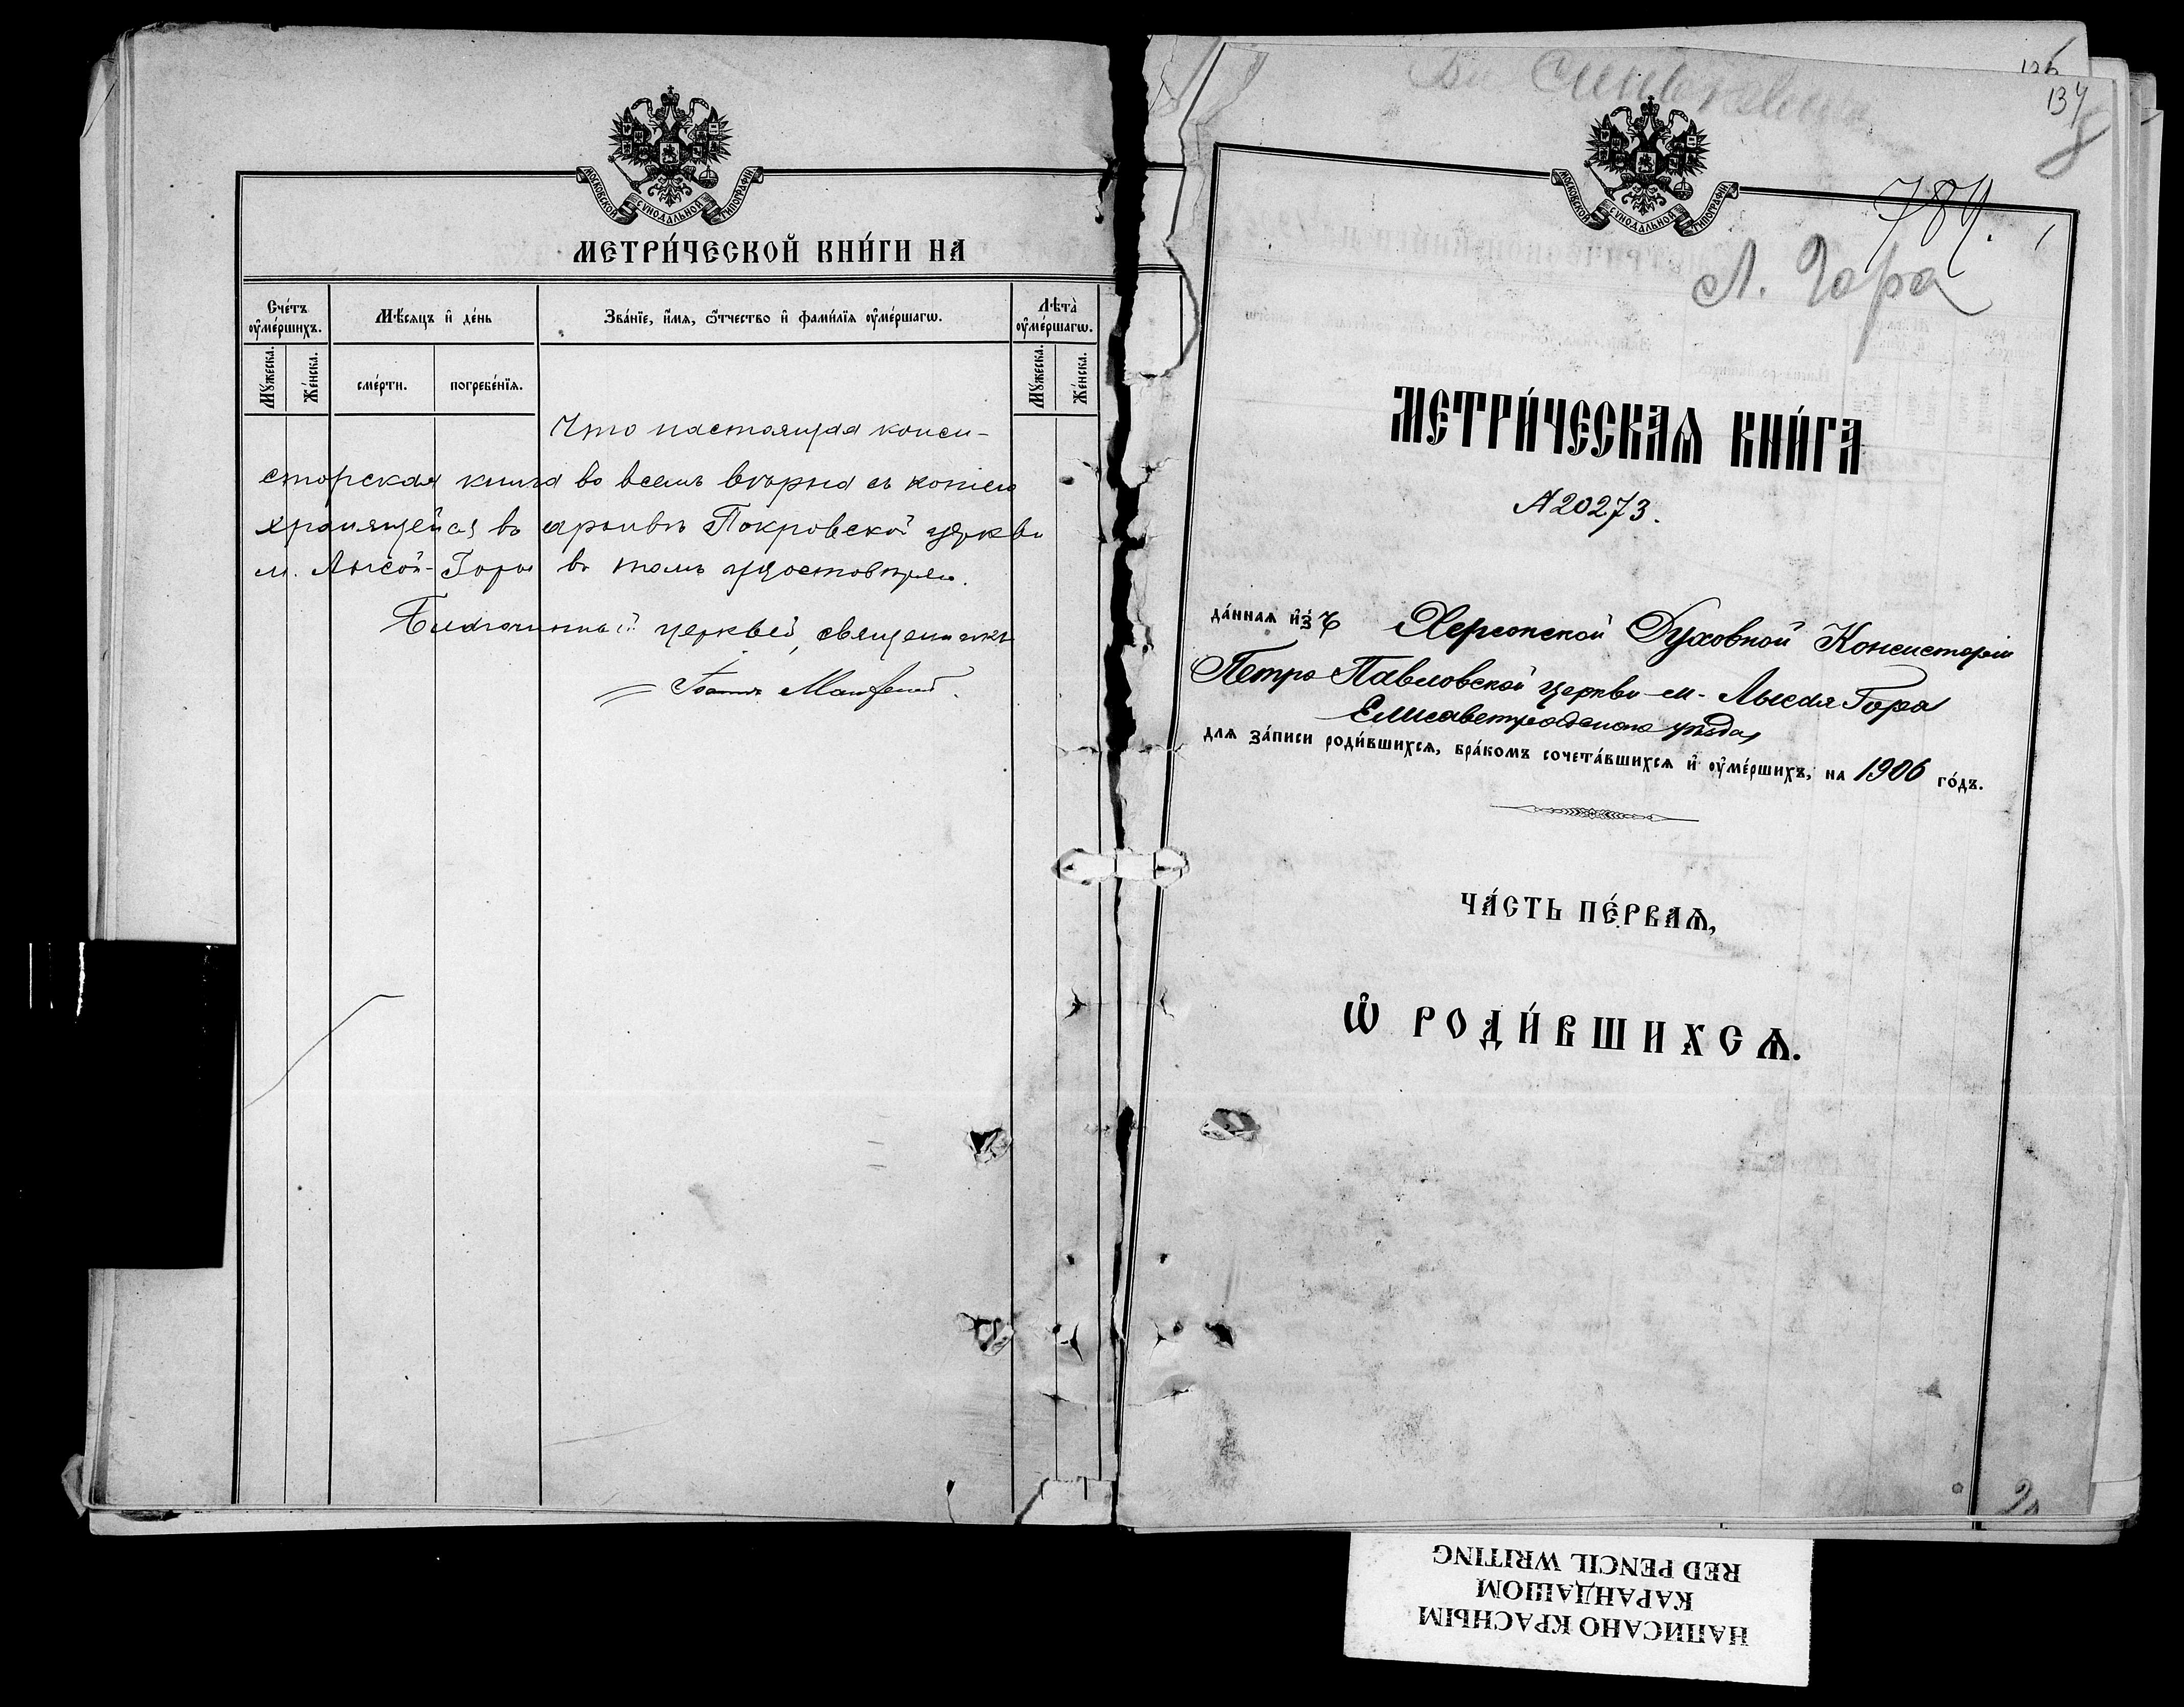 МОСКОВСКОЙ СѴНОДАЛЬНОЙ ТИПОГРАФІИ
МЕТРИ́ЧЕСКОЙ КНИ́ГИ НА
Сче́тъ ᲂу҆ме́ршихъ.
Мѣ́сяцъ и҆ де́нь
Зва́нїе, и҆́мѧ, ѻ҆́тчество и҆ фами́лїѧ ᲂу҆ме́ршагѡ.
Лѣта̀ ᲂу҆ме́ршагѡ.
Мꙋ́жеска.
Же́нска.
сме́рти.
погребе́нїѧ.
Мꙋ́жеска.
Же́нска.
Что настоящая конси-
сторская книга во всемъ вѣрна съ копіею
хранящейся въ архивѣ Покровской церкви
м. Лысой-Горы въ томъ удостовѣряю.
Благочинный церквей, священникъ
Іоаннъ
126
134
МОСКОВСКОЙ СѴНОДАЛЬНОЙ ТИПОГРАФІИ
784.
Л. Гора
МЕТРИ́ЧЕСКАѦ КНИ́ГА
№ 20273.
да́ннаѧ и҆зъ Херсонской Духовной Консисторіи
Петро-Павловской церкви м. Лысая Гора
Елисаветградскаго уѣзда,
длѧ за́писи роди́вшихсѧ, бра́комъ сочета́вшихсѧ и҆ ᲂу҆ме́ршихъ, на 1906 го́дъ.
ЧА́СТЬ ПЕ́РВАѦ,
Ѡ҆ РОДИ́ВШИХСѦ.
НАПИСАНО КРАСНЫМ
КАРАНДАШОМ
RED PENCIL WRITING